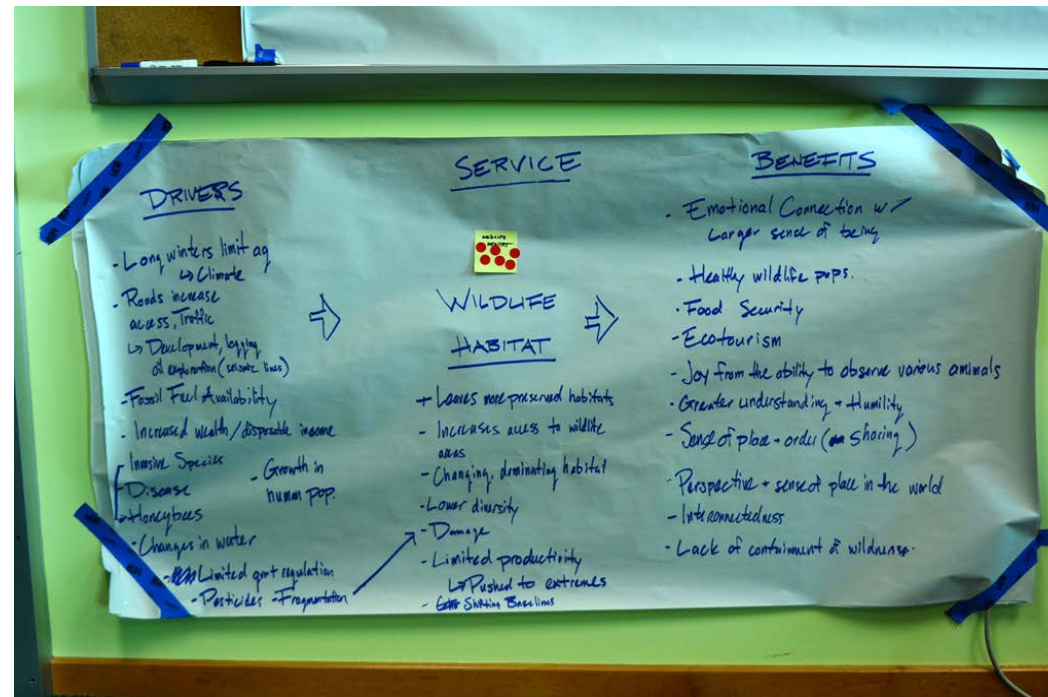 DRIVERS
- Long winters limit ag
↳ Climate
- Roads increase
access, Traffic
↳ Development, logging
oil exploration (seismic lines)
- Fossil Fuel Availability
- Increased wealth/disposable income
Invasive Species
- Disease
- Growth in
human pop.
Honeybees
- Changes in water
- Limited gmt regulation
- Pesticides - Fragmentation
SERVICE
WILDLIFE
WILDLIFE
HABITAT
+ Leaves more preserved habitats
- Increases access to wildlife
areas
- Changing, dominating habitat
- Lower diversity
- Damage
- Limited productivity
↳ Pushed to extremes
- Shifting Baselines
BENEFITS
- Emotional Connection w/
Larger sense of being
- Healthy wildlife pops.
- Food Security
- Ecotourism
- Joy from the ability to observe various animals
- Greater understanding + Humility
- Sense of place + order (sharing)
- Perspective + sense of place in the world
- Interconnectedness
- Lack of containment of